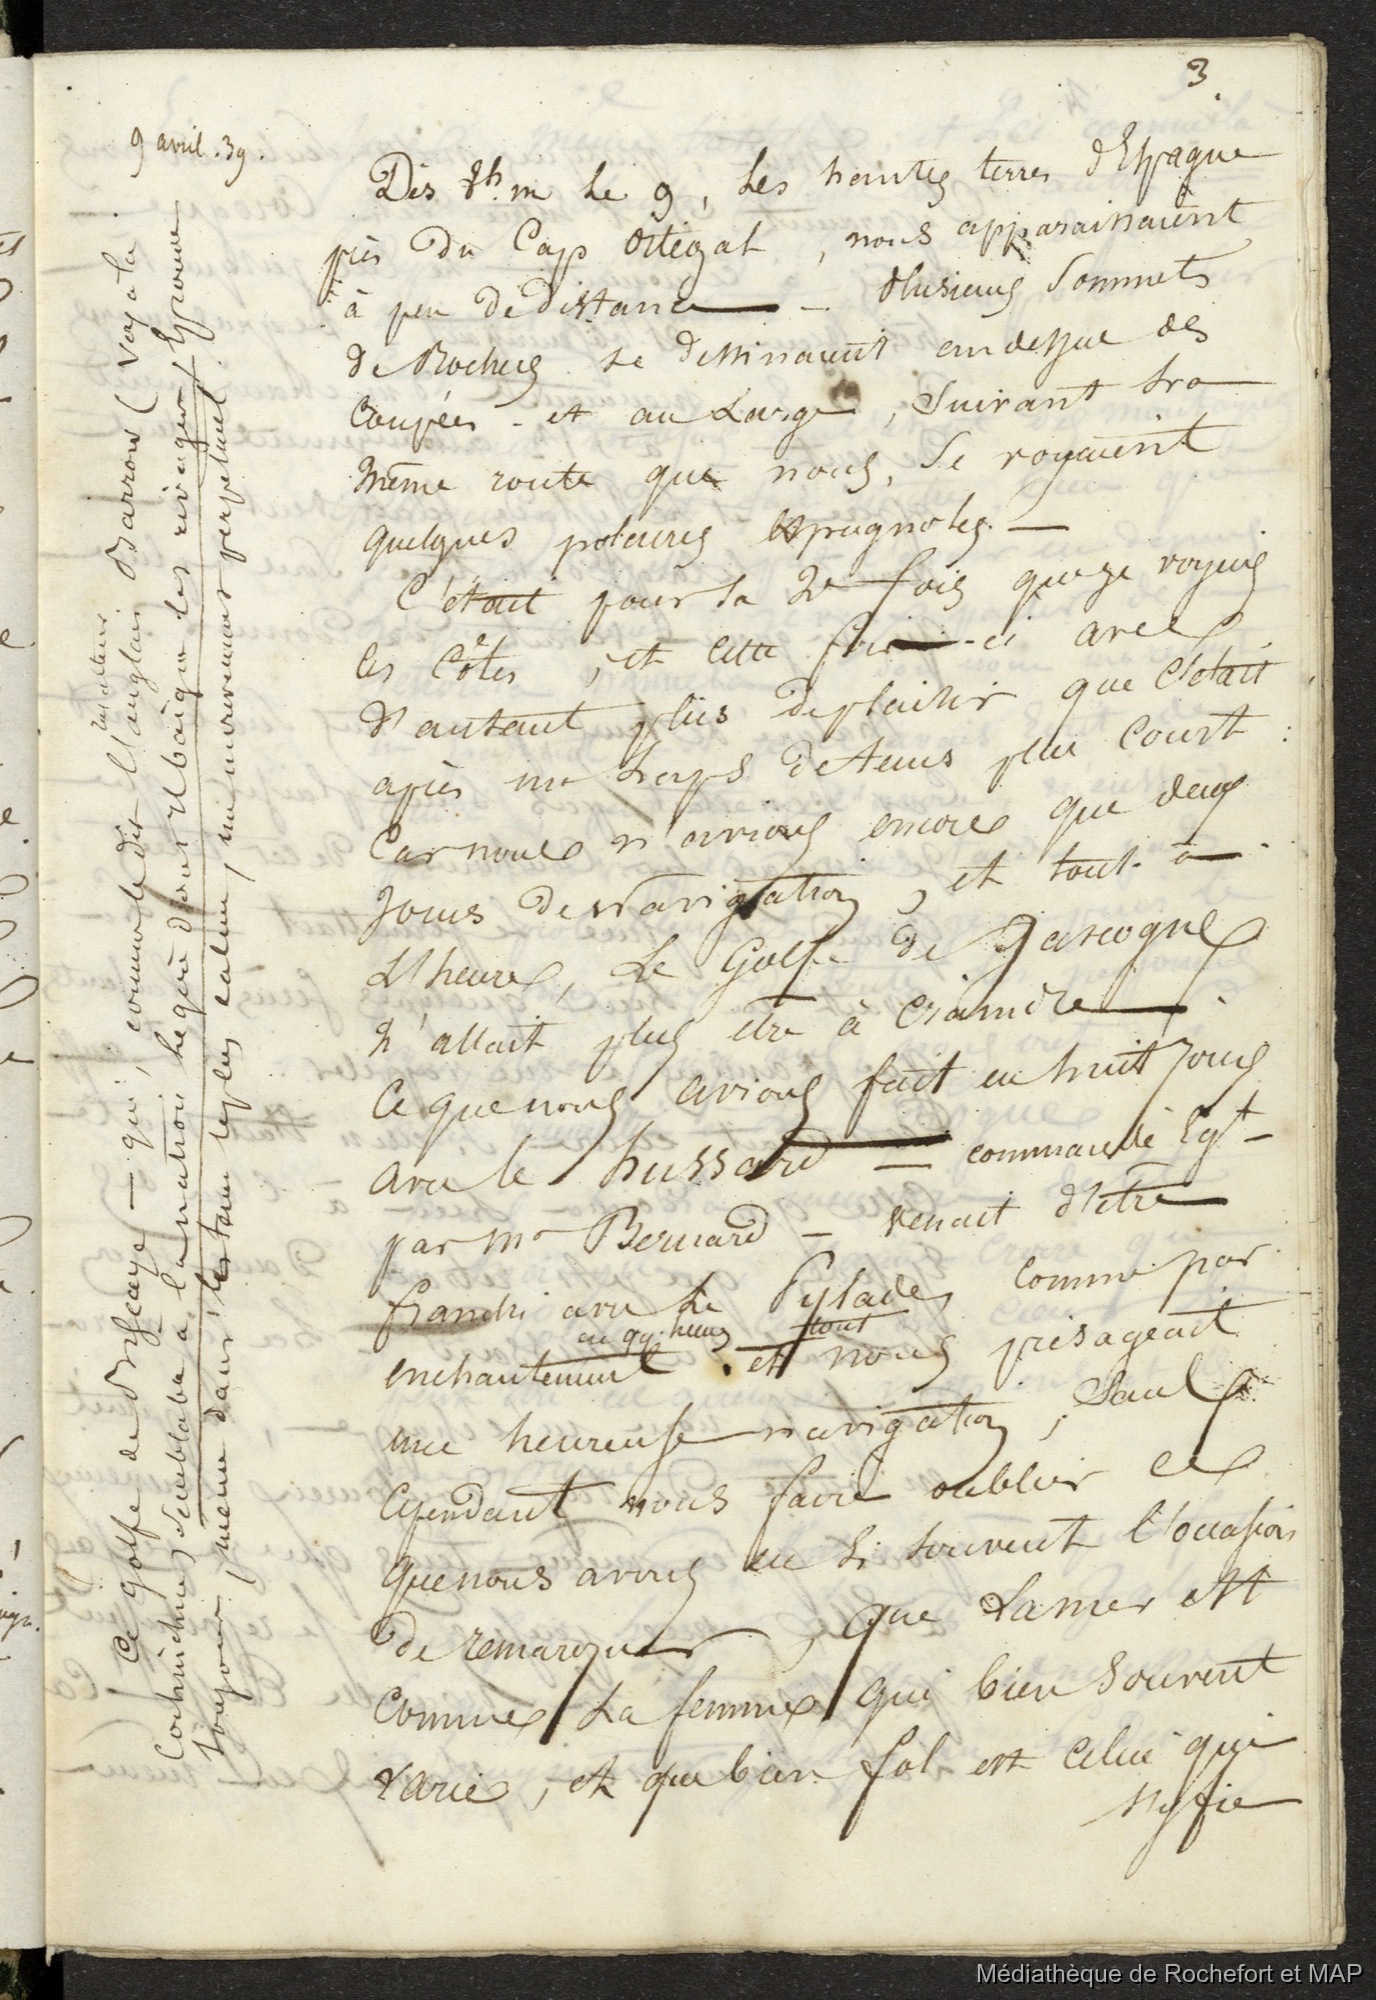 3.
9 avril. 39.
Dès 8h. m le 9, les hautes terres d'Espagne
près du Cap Ortégal, nous apparaissaient
à peu de distance — plusieurs sommets
de Rochers se dessinaient au dessus des
Coupées - et au Large, suivant la
même route que nous, se voyaient
quelques polacres Espagnoles. —
C'était pour la 2e fois que je voyais
les Côtes, et cette fois-ci avec
d'autant plus de plaisir que c'était
après un Laps de tems plus court :
Car nous n'avions encore que deux
jours de navigation, et tout-à-
l'heure, le Golfe de Gascogne
n'allait plus être à Craindre.
Ce que nous avions fait en huit jours
avec le hussard — commandé
par mr Bernard — venait d'être
franchi avec le Pylade, comme par
enchantement en 44 heures. et tout nous présageait
une heureuse navigation, Sauf
Cependant nous faire oublier ce
que nous avons eu si souvent l'occasion
de remarquer, que la mer est
comme la femme qui bien souvent
varie, et que bien fol est celui qui
s'y fie
Ce golfe de Biscaye — qui, comme le dit l'anglais Barrow (Voy. à la
Cochinchine) semblable à la nation légère dont il baigne les rivages, Eprouve
toujours, même dans l'instant le plus calme, un mouvement perpétuel.